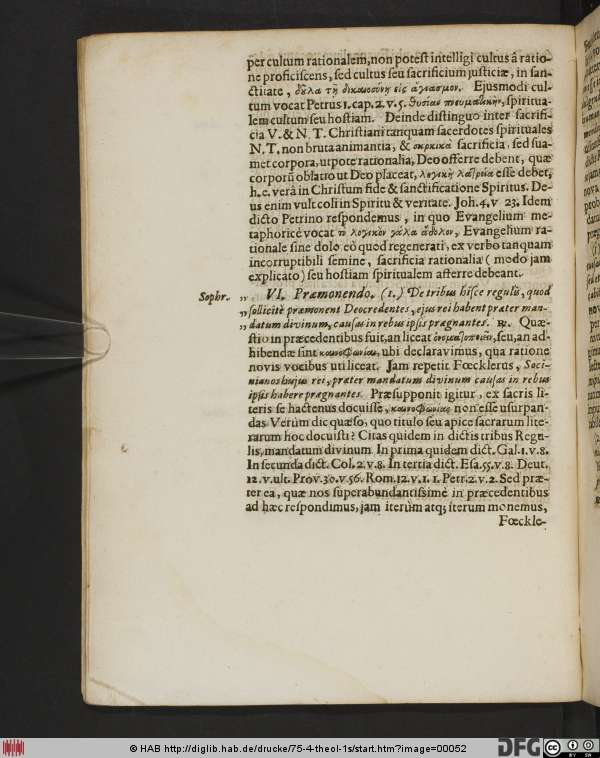 per cultum rationalem, non potest intelligi cultus â ratio-
ne proficiscens, sed cultus seu sacrificium justiciæ, in san-
ctitate, δᾶλα τῇ δικαιοσύνῃ εἰς ἁγιασμόν. Ejusmodi cul-
tum vocat Petrus 1. cap. 2. v. 5. θυσίαν πνευματικὴν, spiritua-
lem cultum seu hostiam. Deinde distinguo inter sacrifi-
cia V. & N. T. Christiani tanquam sacerdotes spirituales
N. T. non bruta animantia, & σαρκικὰ sacrificia, sed sua-
met corpora, utpote rationalia, Deo offerre debent, quæ
corporū oblatio ut Deo placeat, λογικὴ λατρεία esse debet,
h. e. verâ in Christum fide & sanctificatione Spiritus. De-
us enim vult coli in Spiritu & veritate. Joh. 4. v 23. Idem
dicto Petrino respondemus, in quo Evangelium me-
taphoricè vocat τὸ λογικὸν γάλα ἄδολον, Evangelium ra-
tionale sine dolo eò quod regenerati, ex verbo tanquam
incorruptibili semine, sacrificia rationalia ( modo jam
explicato ) seu hostiam spiritualem afferre debeant.
Sophr. „ VI. Præmonendo. (1.) De tribus hisce regulis, quod
„ sollicitè præmonent Deocredentes, ejus rei habent præter man-
„ datum divinum, causas in rebus ipsis prægnantes. ℞. Quæ-
stio in præcedentibus fuit, an liceat ὀνοματοποιεῖν, seu, an ad-
hibendæ sint καινοφωνίαι, ubi declaravimus, qua ratione
novis vocibus uti liceat. Jam repetit Fœcklerus, Soci-
nianos hujus rei, præter mandatum divinum causas in rebus
ipsis habere prægnantes. Præsupponit igitur, ex sacris li-
teris se hactenus docuisse, καινοφωνίας non esse usurpan-
das Verùm dic quæso, quo titulo seu apice sacrarum lite-
rarum hoc docuisti? Citas quidem in dictis tribus Regu-
lis, mandatum divinum. In prima quidem dict. Gal. 1. v. 8.
In secunda dict. Col. 2. v. 8. In tertia dict. Esa. 55. v. 8. Deut.
12. v. ult. Prov. 30. v. 56. Rom. 12. v. 1. 1. Petr. 2. v. 2. Sed præ-
ter ea, quæ nos superabundantissimè in præcedentibus
ad hæc respondimus, jam iterùm atq; iterum monemus,
Fœckle-
© HAB http://diglib.hab.de/drucke/75-4-theol-1s/start.htm?image=00052
DFG
cc BY SA